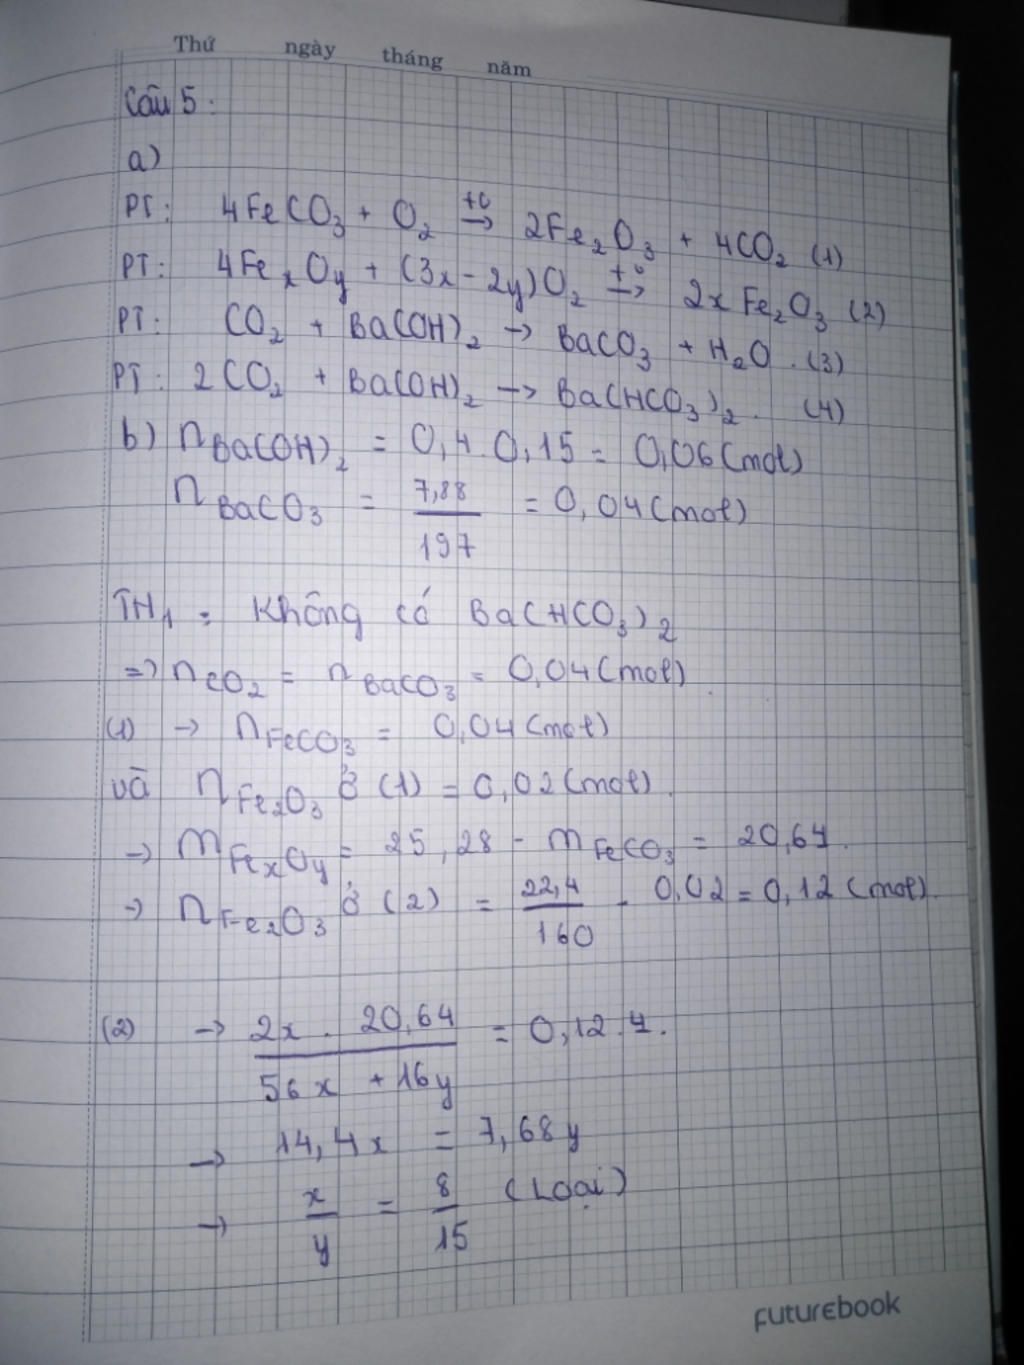 Thứ ngày tháng năm
Câu 5:
a)
PT: 4FeCO3 + O2 →t° 2Fe2O3 + 4CO2 (1)
PT: 4FexOy + (3x-2y)O2 →t° 2xFe2O3 (2)
PT: CO2 + Ba(OH)2 → BaCO3 + H2O. (3)
PT: 2CO2 + Ba(OH)2 → Ba(HCO3)2. (4)
b) nBa(OH)2 = 0,4.0,15 = 0,06(mol)
nBaCO3 = 7,88/197 = 0,04(mol)
TH1: Không có Ba(HCO3)2
=> nCO2 = nBaCO3 = 0,04(mol).
(1) → nFeCO3 = 0,04(mol)
và nFe2O3 ở (1) = 0,02(mol).
→ mFexOy = 25,28 - mFeCO3 = 20,64.
→ nFe2O3 ở (2) = 22,4/160 - 0,02 = 0,12(mol).
(2) → 2x.20,64/56x+16y = 0,12.4.
→ 14,4x = 7,68y
→ x/y = 8/15 (Loại)
FUTUREBOOK